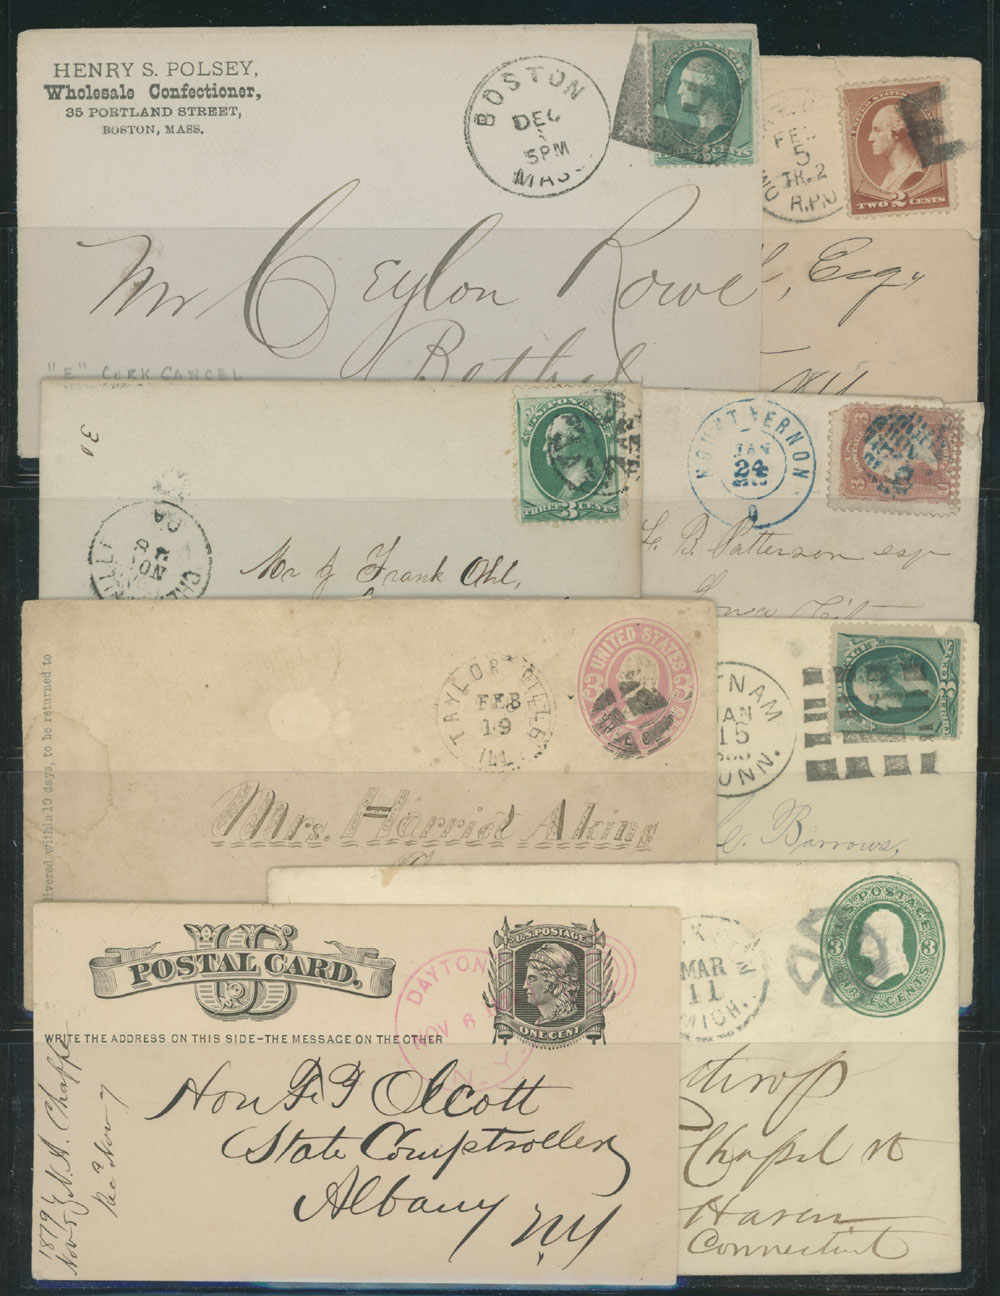 HENRY S. POLSEY,
Wholesale Confectioner,
35 PORTLAND STREET,
BOSTON, MASS.
BOSTON
DEC
5PM
MASS.
THREE 3 CENTS
Mr Ceylon Rowe
Bethel
"E" CORK CANCEL
FEB
5
TR.2
R.P.O
TWO 2 CENTS
Esq,
30
THREE 3 CENTS
Mr J Frank Ohl,
MOUNT VERNON
JAN
24
O
3 3
L. B. Patterson esqr
Iowa City
livered within 10 days, to be returned to
TAYLORVILLE
FEB
19
ILL
UNITED STATES
Mrs. Harriet Aking
TNAM
JAN
15
CONN.
3 CENTS
Barrows,
US
POSTAL CARD.
WRITE THE ADDRESS ON THIS SIDE–THE MESSAGE ON THE OTHER
DAYTON
NOV 6
N.Y.
U.S. POSTAGE
ONE CENT
1879
Nov 5
N. A. Chaffe
Recd Nov 7
Hon F. P. Olcott
State Comptroller
Albany NY
MAR
11
MICH.
U.S. POSTAGE
3 3
THREE CENTS
throp
Chapel St
Haven
Connecticut